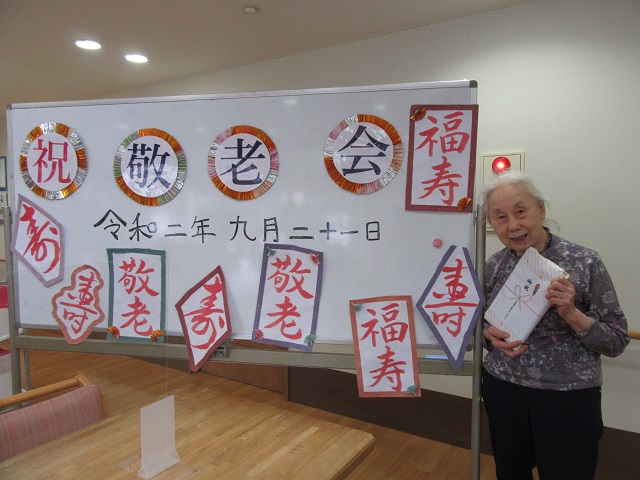 祝敬老会
令和二年九月二十一日
福寿
寿
壽
敬老
寿
敬老
福寿
壽